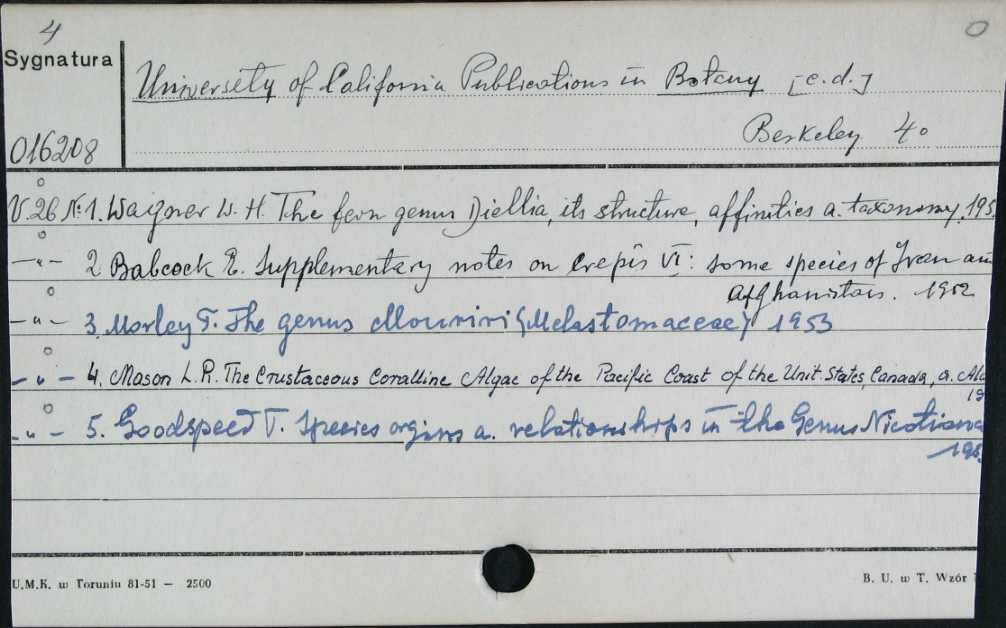 4
O
Sygnatura
University of California Publications in Botany [c.d.]
Berkeley 4o
016208
V.26 № 1. Wagner W. H. The fern genus Diellia, its structure, affinities a. taxonomy. 195
-"- 2 Babcock E. Supplementary notes on Crepis VI: some species of Iran an
Afghanistan. 1952
-"- 3. Morley T. The genus Mouriri (Melastomaceae) 1953
-"- 4. Mason L.R. The Crustaceous Coralline Algae of the Pacific Coast of the Unit. States, Canada, a. Ala
19
-"- 5. Goodspeed T. Species orgins a. relationships in the Genus Nicotiana
195
U.M.K. w Toruniu 81-51 — 2500
B. U. w T. Wzór